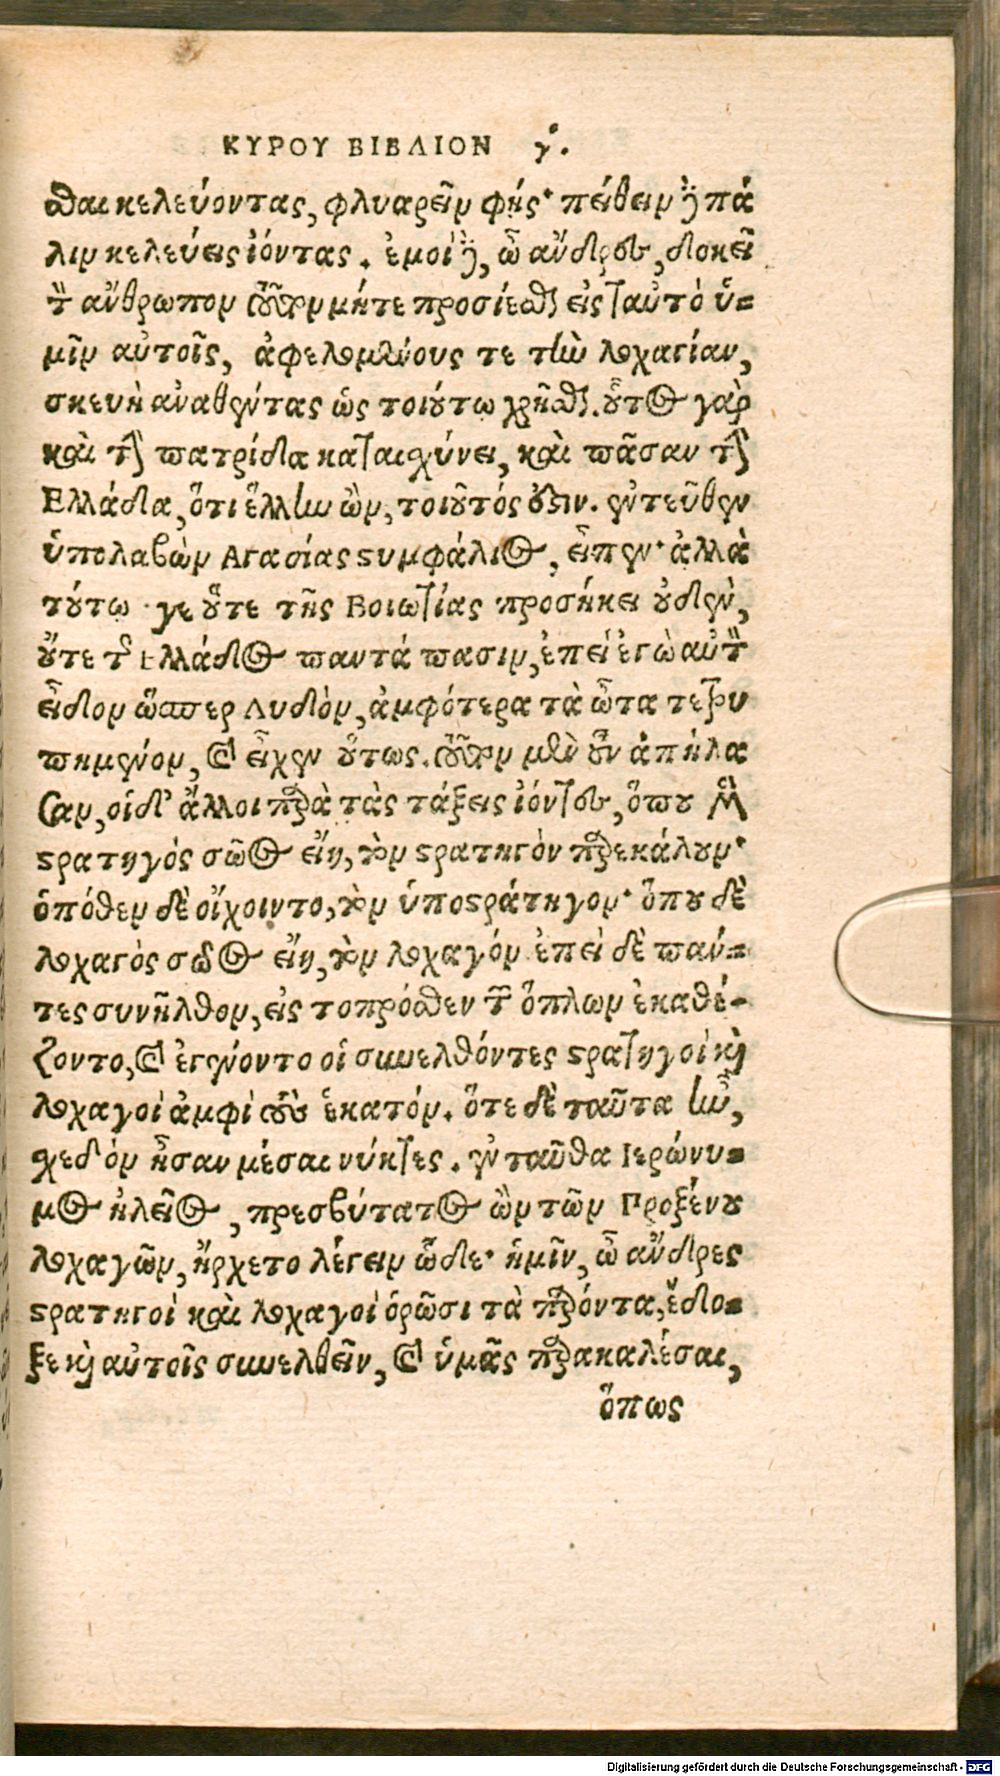 ΚΥΡΟΥ ΒΙΒΛΙΟΝ γ.
σθαι κελεύοντας, φλυαρεῖν φής· πείθειν δὲ πά
λιν κελεύεις ἰόντας. ἐμοὶ δὲ, ὦ ἄνδρες, δοκεῖ
τὸν ἄνθρωπον τοῦτον μήτε προσίεσθαι εἰς ταὐτὸ ὑ-
μῖν αὐτοῖς, ἀφελομένους τε τὴν λοχαγίαν,
σκευὴ ἀναθέντας ὡς τοιούτω χρῆσθαι. οὗτος γὰρ
καὶ τὴν πατρίδα καταισχύνει, καὶ πᾶσαν τὴν
Ελλάδα, ὅτι ἕλλην ὢν, τοιοῦτός ἐστιν. ἐντεῦθεν
ὑπολαβὼν Αγασίας στυμφάλιος, εἶπεν· ἀλλὰ
τούτω γε οὔτε τῆς Βοιωτίας προσήκει οὐδὲν,
οὔτε τῆς Ελλάδος παντά πασιν, ἐπεὶ ἐγὼ αὐτὸν
εἶδον ὥσπερ Λυδὸν, ἀμφότερα τὰ ὦτα τετρυ
πημένον, καὶ εἶχεν οὕτως. τοῦτον μὲν οὖν ἀπήλα
σαν, οἱ δ' ἄλλοι παρὰ τὰς τάξεις ἰόντες, ὅπου μὲν
στρατηγός σῶος εἴη, τὸν στρατηγὸν παρεκάλουν·
ὁπόθεν δὲ οἴχοιντο, τὸν ὑποστράτηγον· ὅπου δὲ
λοχαγὸς σῶος εἴη, τὸν λοχαγόν. ἐπεὶ δὲ πάν-
τες συνῆλθον, εἰς τοπρόσθεν τῶν ὅπλων ἐκαθέ-
ζοντο, καὶ ἐγένοντο οἱ συνελθόντες στρατηγοὶ καὶ
λοχαγοὶ ἀμφὶ τοὺς ἑκατόν. ὅτε δὲ ταῦτα ἦν,
σχεδὸν ἦσαν μέσαι νύκτες. ἐνταῦθα Ιερώνυ-
μος ἠλεῖος, πρεσβύτατος ὢν τῶν Προξένου
λοχαγῶν, ἤρχετο λέγειν ὧδε· ἡμῖν, ὦ ἄνδρες
στρατηγοὶ καὶ λοχαγοὶ ὁρῶσι τὰ παρόντα, ἔδο-
ξε καὶ αὐτοῖς συνελθεῖν, καὶ ὑμᾶς παρακαλέσαι,
ὅπως
Digitalisierung gefördert durch die Deutsche Forschungsgemeinschaft - DFG